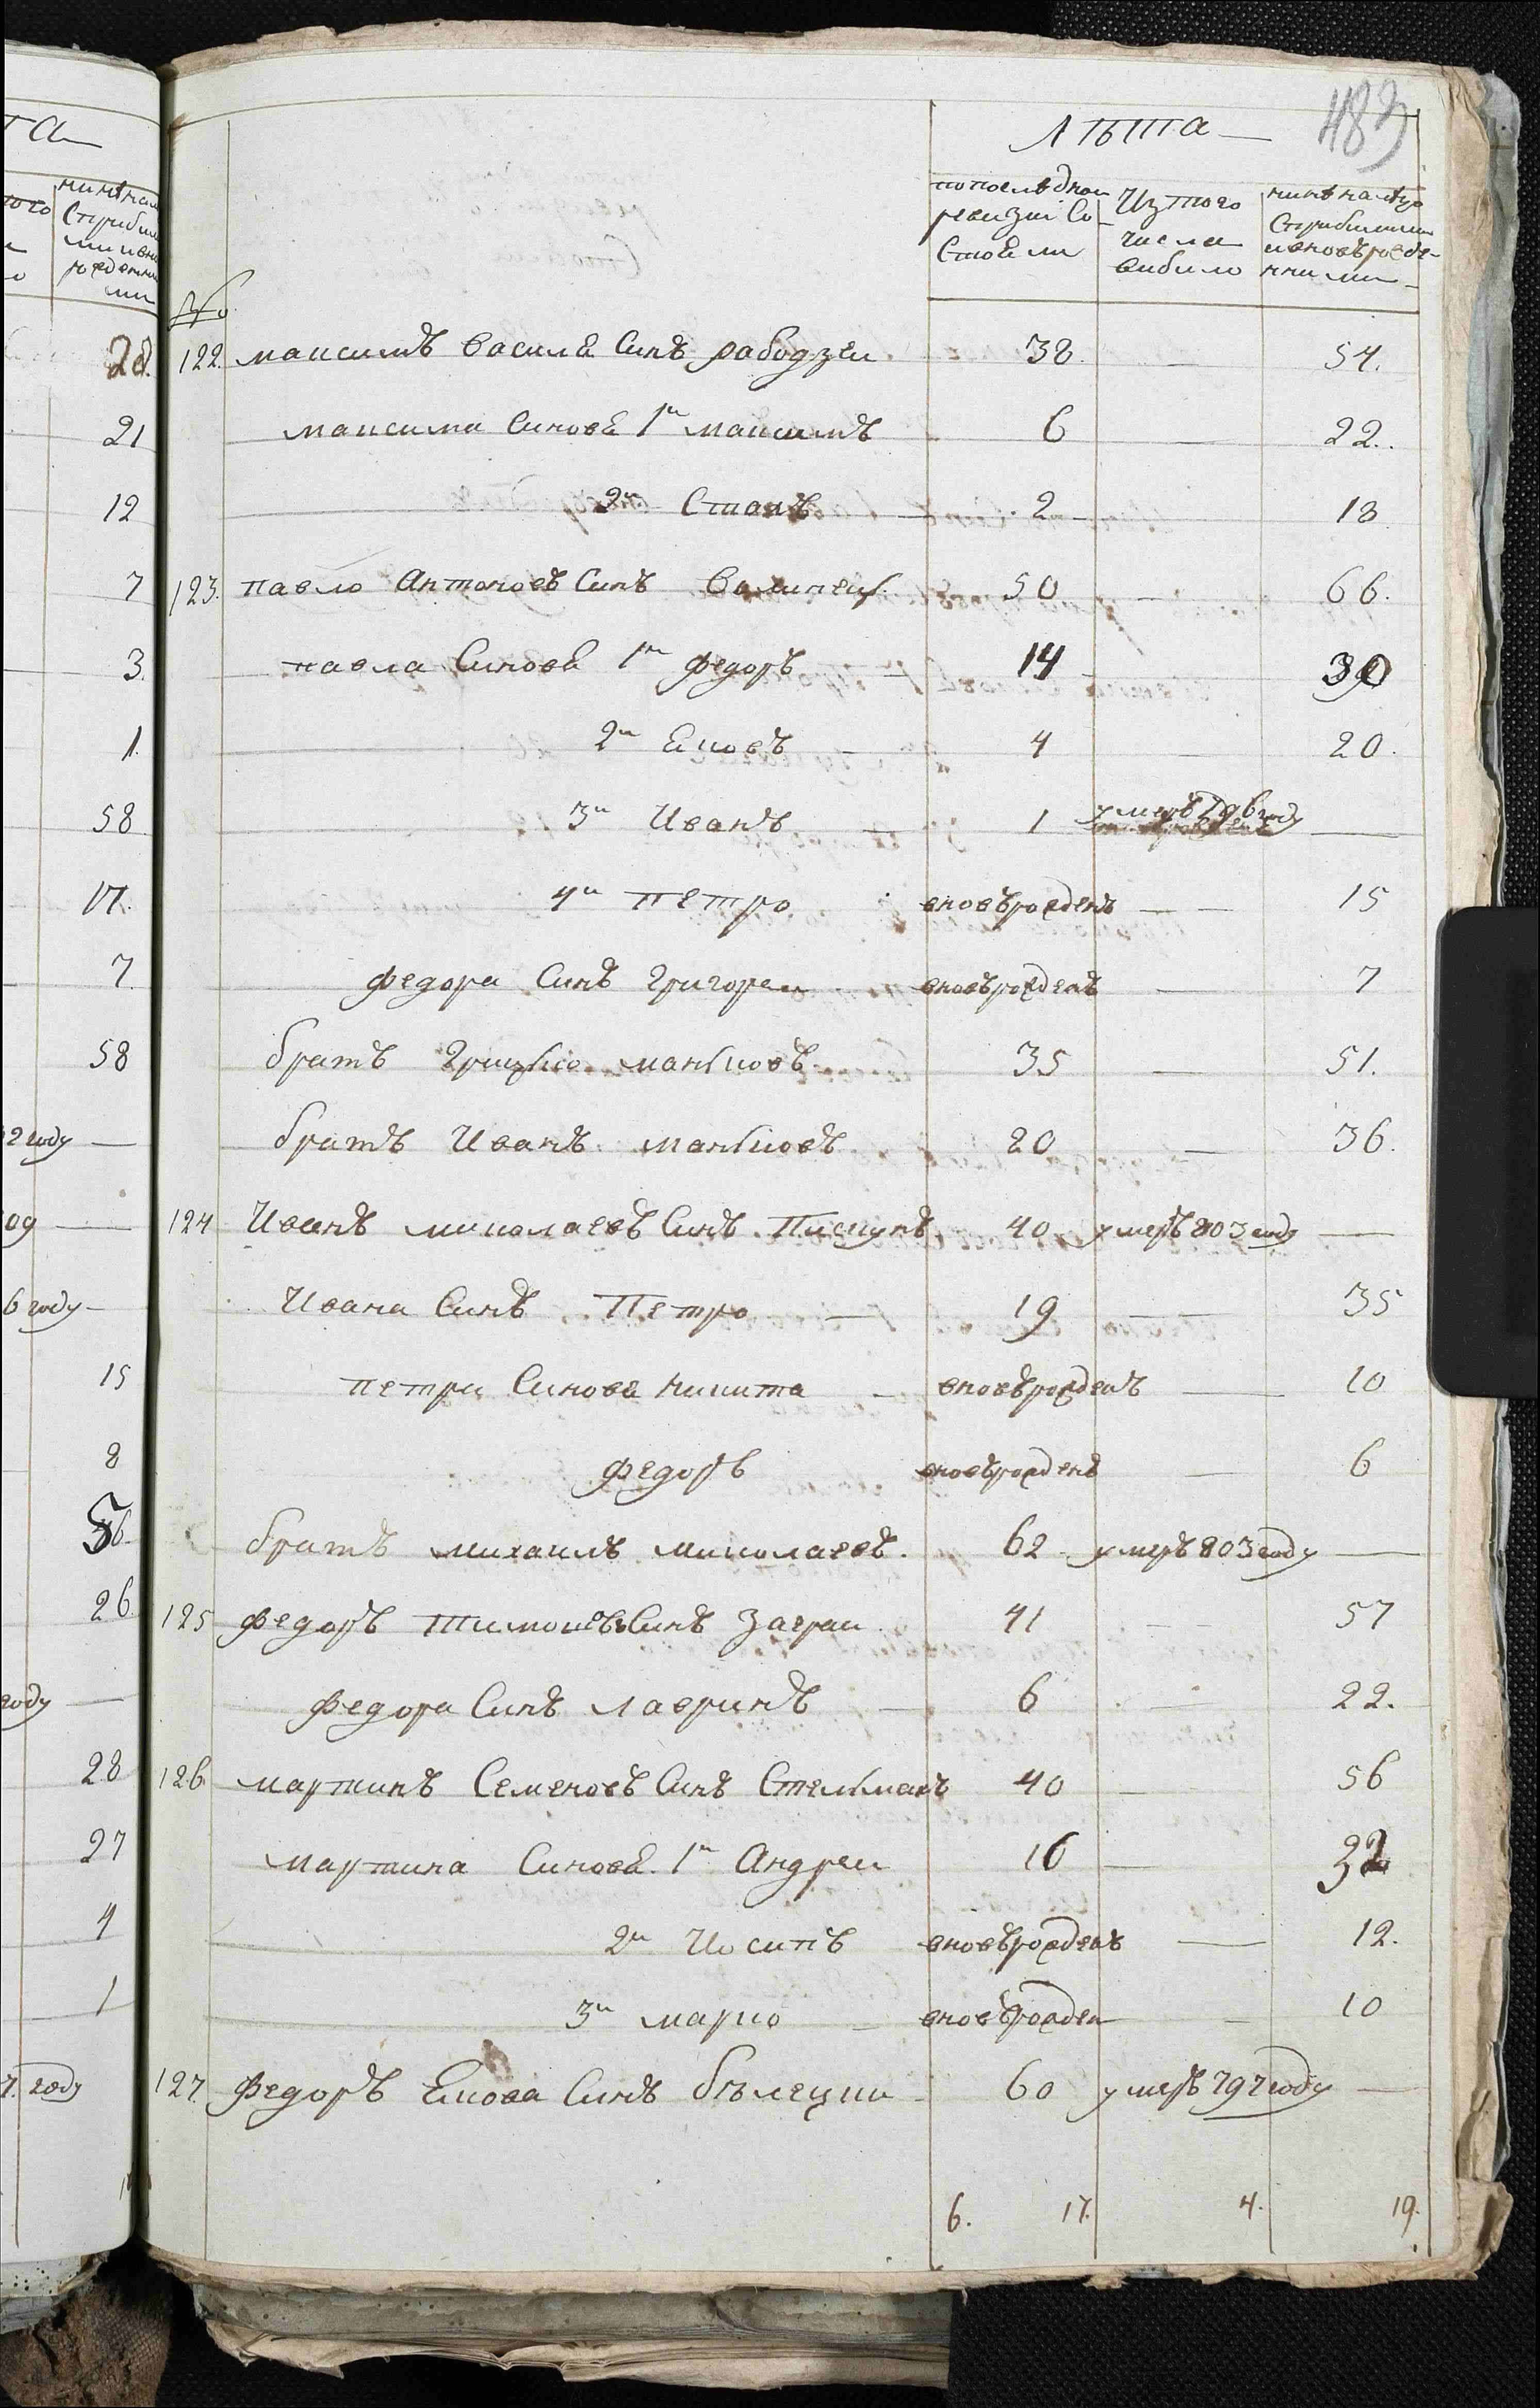 та
483
Лѣта
нинѣ на
попослѣдной ревизіи Состояли
Изтого числа вибило
нинѣ налицо Сприбилими ивновърожденними
№
28.
122. максимъ василя Синъ рабодзей 38. — 54.
21
максима Синовя 1й максимъ 6 — 22.
12
2й Стахъ 2 — 18
7
123. павло Антоновъ Синъ Волинецъ 50 — 66.
3.
павла Синовя 1й федоръ 14 30
1.
2й Яковъ 4 20.
58
3й Иванъ 1 умеръ 796 году —
17.
4й петро вновърожденъ — 15
7.
федора Синъ григорей вновърожденъ — 7
58
братъ грицько маньковъ 35 — 51.
2 году —
братъ Иванъ маньковъ 20 — 36.
09 —
124 Иванъ миколаевъ Синъ Пискунъ 40 умеръ 803 году —
6 году —
Ивана Синъ Петро — 19 — 35
15
петра Синовя никита — вновърожденъ — 10
8
федоръ вновърожденъ — 6
56.
братъ михаилъ миколаевъ. 62 умеръ 803 году —
26
125 федоръ Тимошовъ Синъ Заграй 41 — 57
году —
федора Синъ лавринъ — 6 — 22.
28
126. мартинъ Семеновъ Синъ Стельмахъ 40 — 56
27
мартина Синовя. 1й Андрей 16 — 32
4
2й Иосипъ вновърожденъ — 12.
1
3й марко — вновърожден — 10
7. году
127. федоръ Якова Синъ бѣлецки 60 умеръ 797 году —
6. 17. 4. 19.